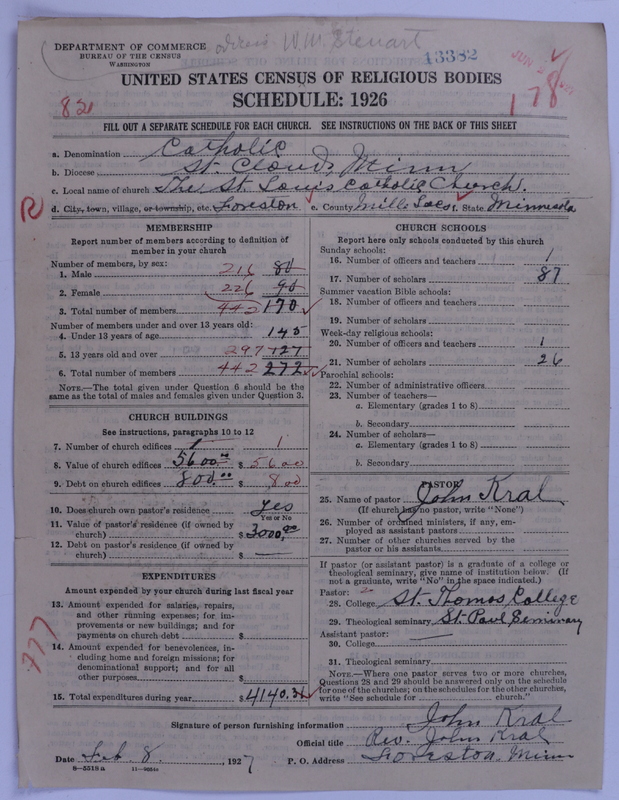 DEPARTMENT OF COMMERCE
BUREAU OF THE CENSUS
WASHINGTON
W. M. Steuart
13382
JUN
178
UNITED STATES CENSUS OF RELIGIOUS BODIES
SCHEDULE: 1926
820
FILL OUT A SEPARATE SCHEDULE FOR EACH CHURCH. SEE INSTRUCTIONS ON THE BACK OF THIS SHEET
a. Denomination Catholic
b. Diocese St. Cloud, Minn
c. Local name of church The St. Louis Catholic Church.
R d. City, town, village, or township, etc. Foreston e. County Mille Lacs f. State Minnesota
MEMBERSHIP
Report number of members according to definition of member in your church
Number of members, by sex:
1. Male 216 80
2. Female 226 90
3. Total number of members 442 170
Number of members under and over 13 years old:
4. Under 13 years of age 145
5. 13 years old and over 297 127
6. Total number of members 442 272
NOTE.—The total given under Question 6 should be the same as the total of males and females given under Question 3.
CHURCH BUILDINGS
See instructions, paragraphs 10 to 12
7. Number of church edifices 1 1
8. Value of church edifices 5600.00 $ 5600
9. Debt on church edifices 800.00 $ 800
10. Does church own pastor's residence yes
Yes or No
11. Value of pastor's residence (if owned by church) $ 3000.00
12. Debt on pastor's residence (if owned by church) $ —
EXPENDITURES
Amount expended by your church during last fiscal year
13. Amount expended for salaries, repairs, and other running expenses; for improvements or new buildings; and for payments on church debt $
777
14. Amount expended for benevolences, including home and foreign missions; for denominational support; and for all other purposes $
15. Total expenditures during year $ 4140.31
CHURCH SCHOOLS
Report here only schools conducted by this church
Sunday schools:
16. Number of officers and teachers 1
17. Number of scholars 87
Summer vacation Bible schools:
18. Number of officers and teachers
19. Number of scholars
Week-day religious schools:
20. Number of officers and teachers 1
21. Number of scholars 26
Parochial schools:
22. Number of administrative officers
23. Number of teachers—
a. Elementary (grades 1 to 8)
b. Secondary
24. Number of scholars—
a. Elementary (grades 1 to 8)
b. Secondary
PASTOR
25. Name of pastor John Kral
(If church has no pastor, write "None")
26. Number of ordained ministers, if any, employed as assistant pastors
27. Number of other churches served by the pastor or his assistants
If pastor (or assistant pastor) is a graduate of a college or theological seminary, give name of institution below. (If not a graduate, write "No" in the space indicated.)
Pastor: 2
28. College St. Thomas College
29. Theological seminary St. Paul Seminary
Assistant pastor: —
30. College
31. Theological seminary
NOTE.—Where one pastor serves two or more churches, Questions 28 and 29 should be answered only on the schedule for one of the churches; on the schedules for the other churches, write "See schedule for church."
Signature of person furnishing information John Kral
Official title Rev. John Kral
Date Feb. 8, 1927 P. O. Address Foreston, Minn
8—5518a 11—9684